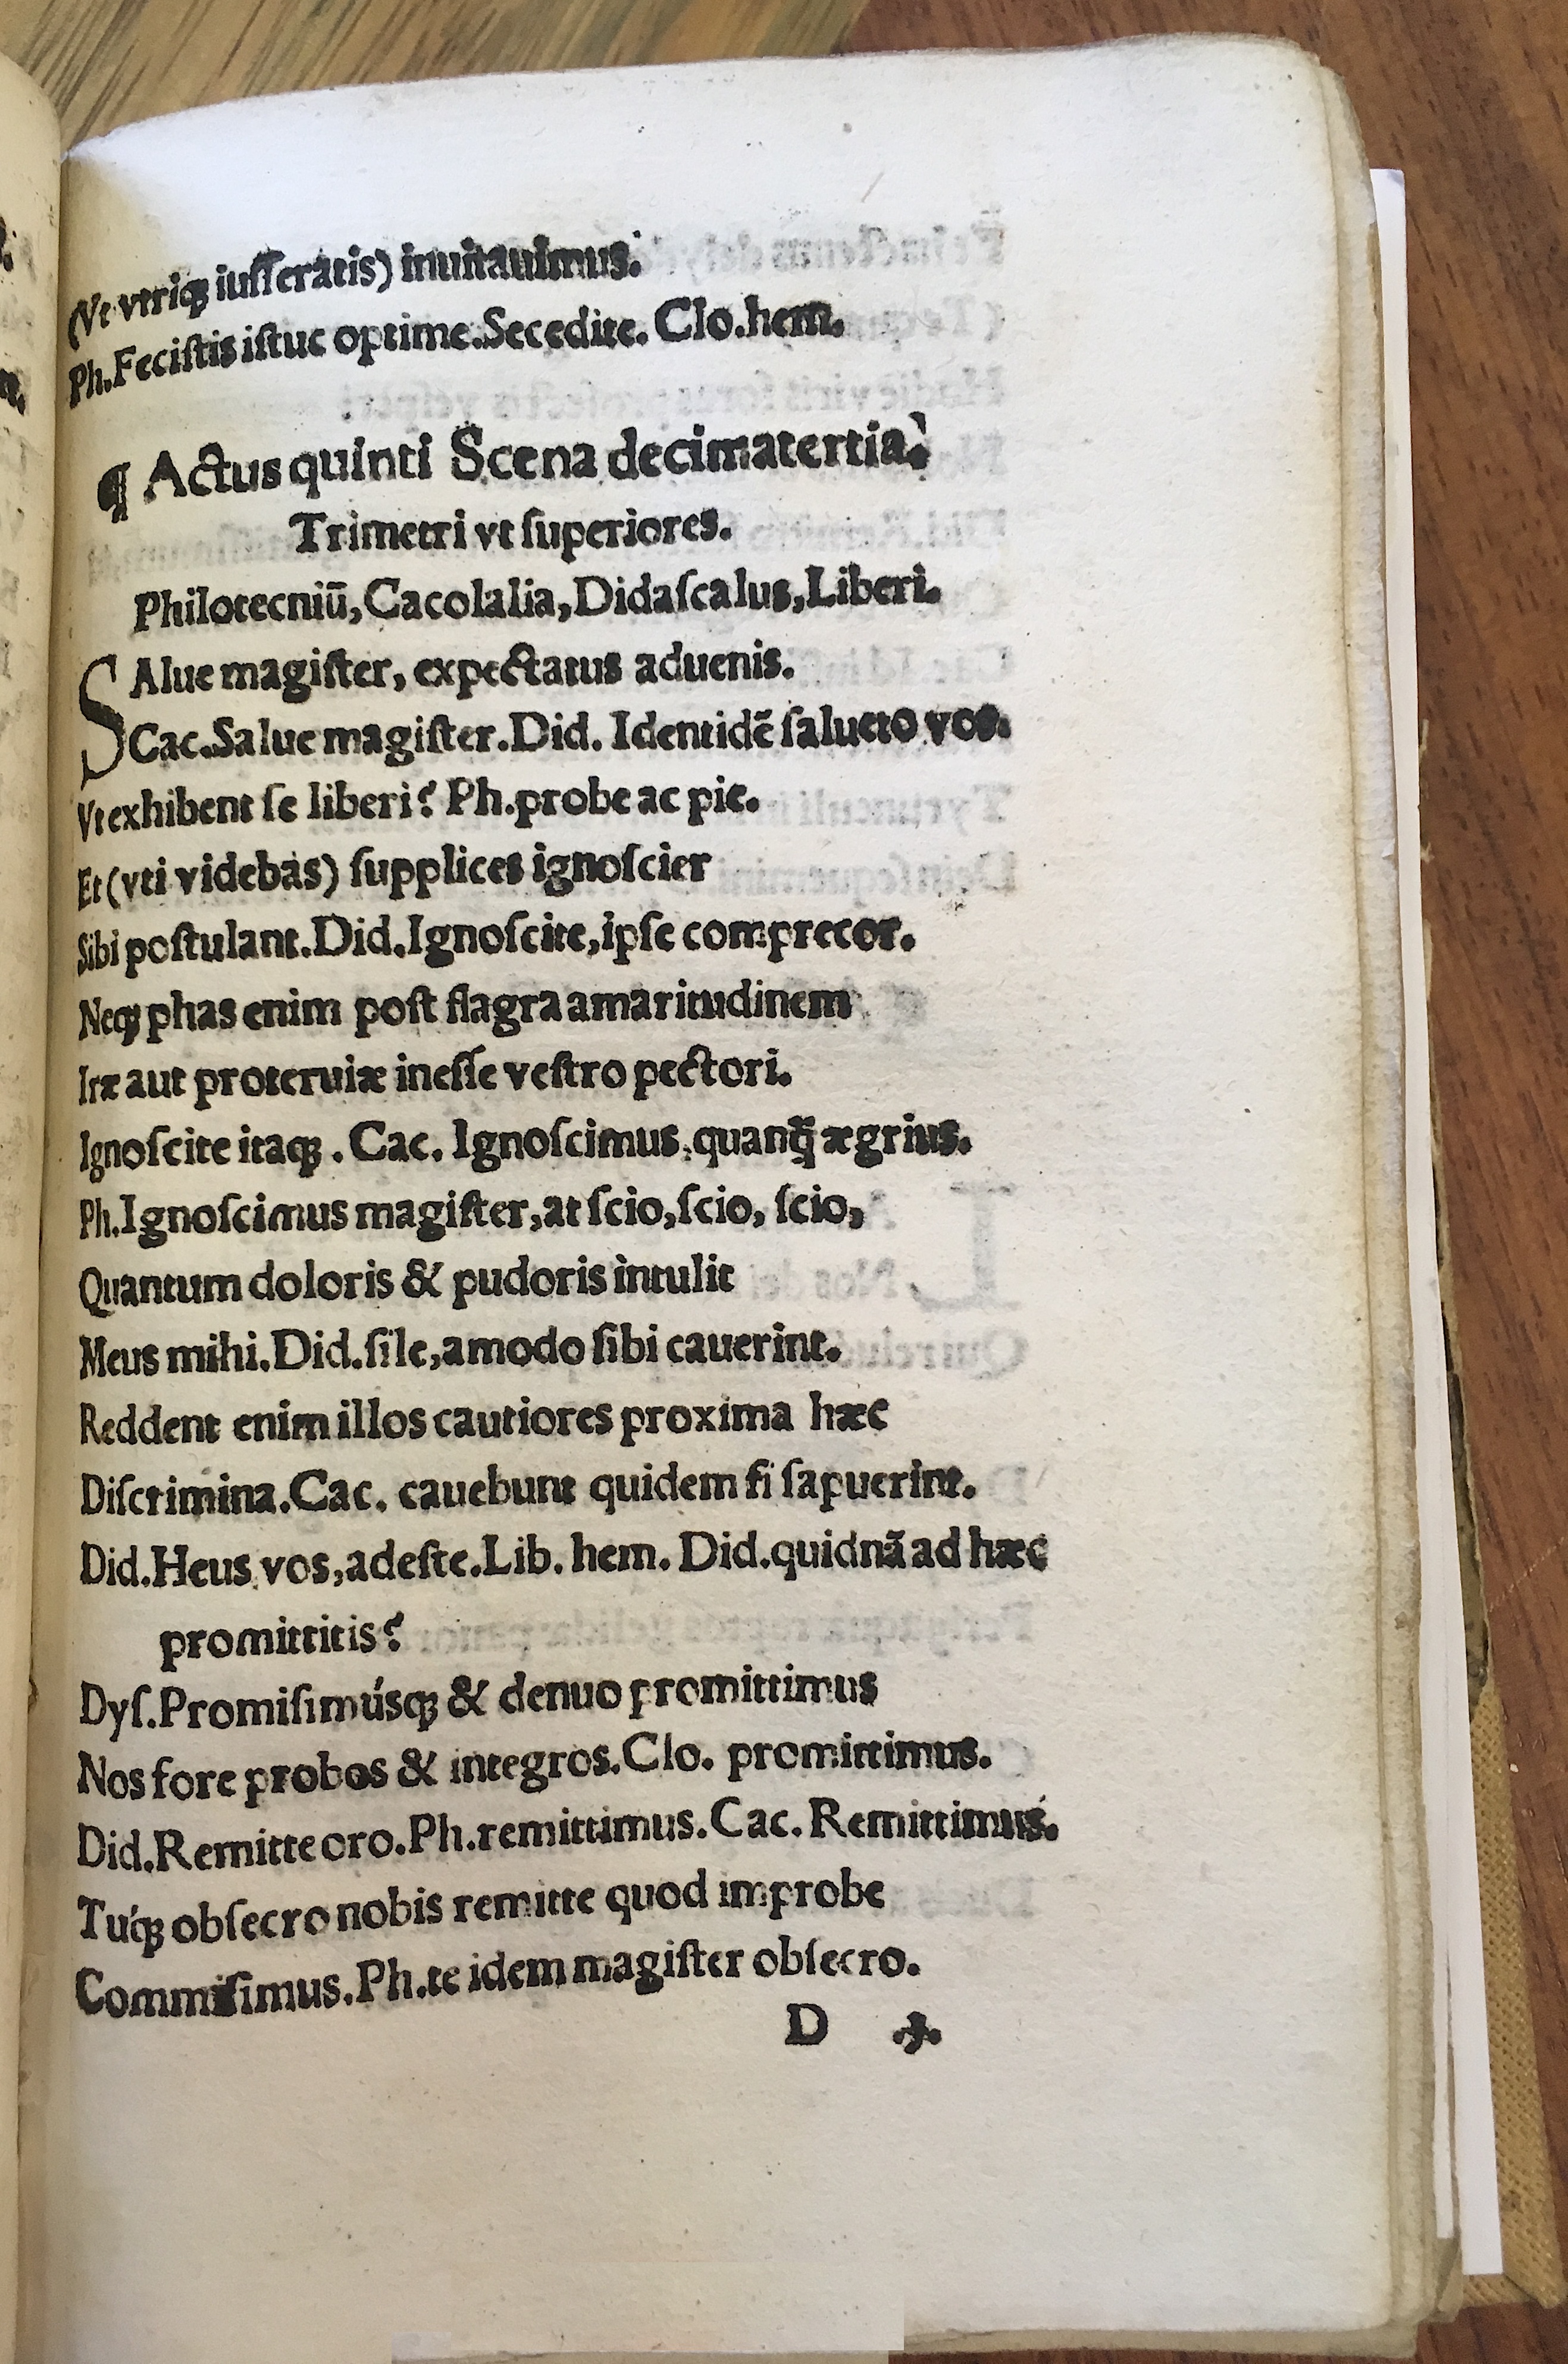 (Vt vtriqꝫ iuſſeratis) inuitauimus.
Ph. Feciſtis iſtuc optime. Secedite. Clo. hem.
¶ Actus quinti Scena decimatertia.
Trimetri vt ſuperiores.
Philotecniū, Cacolalia, Didaſcalus, Liberi.
SAlue magiſter, expectatus aduenis.
Cac. Salue magiſter. Did. Identidē ſalueto vos.
Vt exhibent ſe liberi? Ph. probe ac pie.
Et (vti videbas) ſupplices ignoſcier
Sibi poſtulant. Did. Ignoſcite, ipſe comprecor.
Neqꝫ phas enim poſt flagra amaritudinem
Iræ aut proteruiæ ineſſe veſtro pectori.
Ignoſcite itaqꝫ. Cac. Ignoſcimus, quanq̄ ægrius.
Ph. Ignoſcimus magiſter, at ſcio, ſcio, ſcio,
Quantum doloris & pudoris intulit
Meus mihi. Did. ſile, amodo ſibi cauerint.
Reddent enim illos cautiores proxima hæc
Diſcrimina. Cac. cauebunt quidem ſi ſapuerint.
Did. Heus vos, adeſte. Lib. hem. Did. quidnā ad hæc
promittitis?
Dyſ. Promiſimúsqꝫ & denuo promittimus
Nos fore probos & integros. Clo. promittimus.
Did. Remitte oro. Ph. remittimus. Cac. Remittimus.
Túqꝫ obſecro nobis remitte quod improbe
Commiſimus. Ph. te idem magiſter obſecro.
D